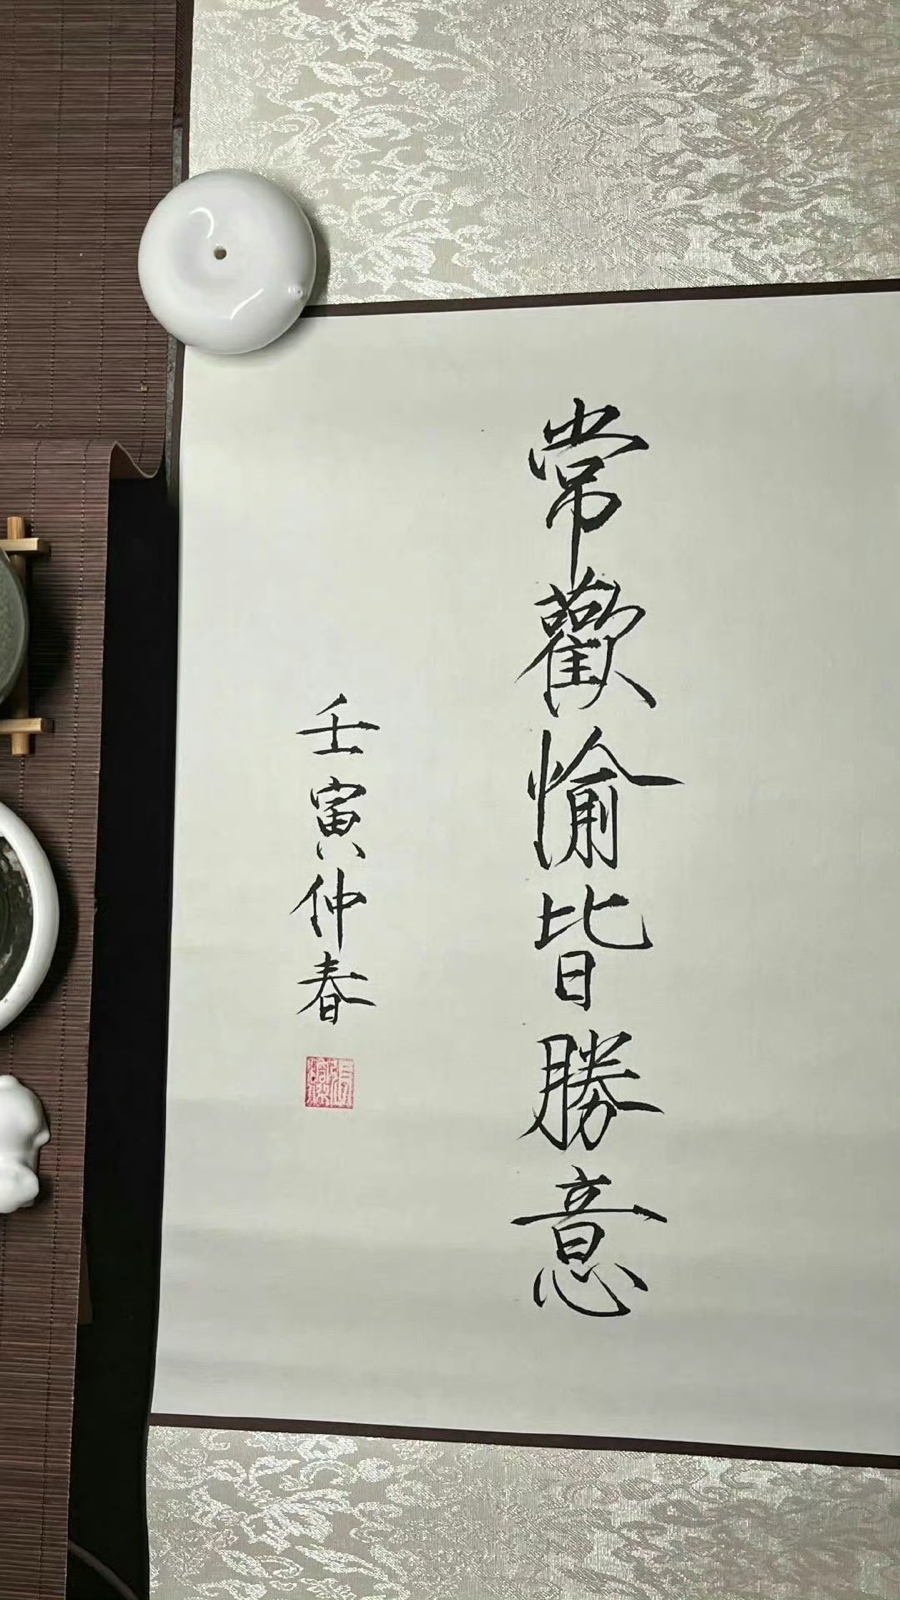 常歡愉皆勝意
壬寅仲春